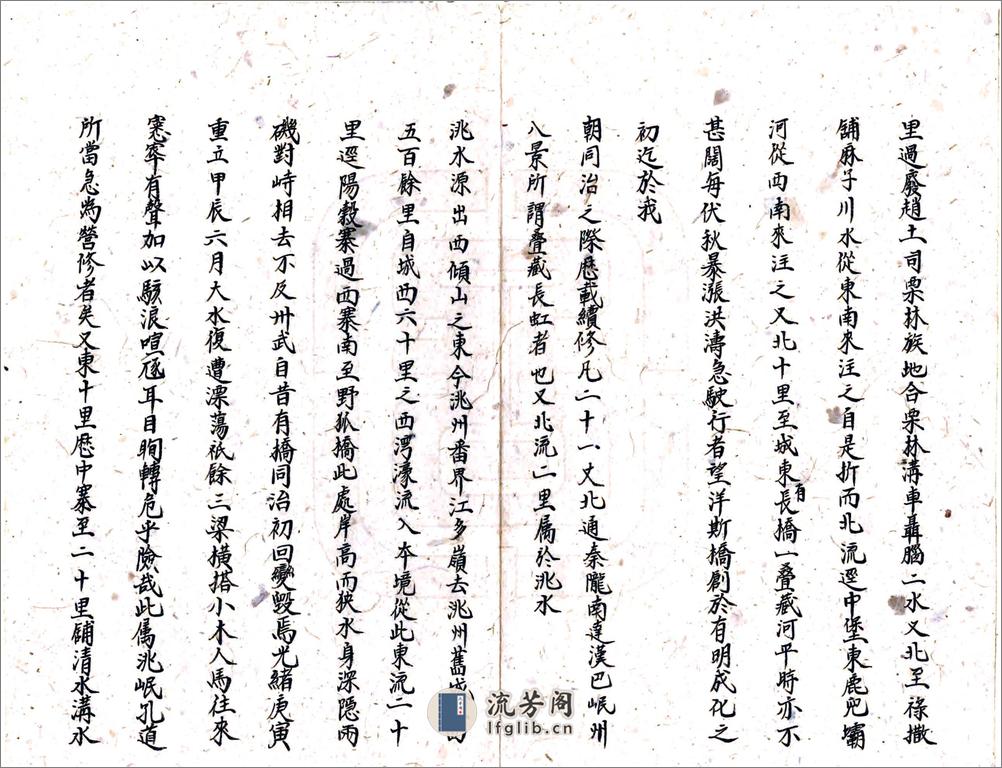 里過廢趙土司栗林族地合栗林溝車聶腦二水又北至祿撒
舖麻子川水從東南來注之自是折而北流逕中堡東鹿兒壩
河從西南來注之又北十里至城東有長橋一疊藏河平時亦不
甚闊每伏秋暴漲洪濤急駛行者望洋斯橋創於有明成化之
初迄於我
朝同治之際歷載續修凡二十一丈北通秦隴南達漢巴岷州
八景所謂疊藏長虹者也又北流一里屬於洮水
洮水源出西傾山之東今洮州番界江多嶺去洮州舊城
五百餘里自城西六十里之西灣濠流入本境從此東流二十
里逕陽穀寨過西寨南至野狐橋此處岸高而狹水身深隱兩
磯對峙相去不及卅武自昔有橋同治初回變毀焉光緒庚寅
重立甲辰六月大水復遭漂蕩祇餘三梁橫搭小木人馬往來
窸窣有聲加以駭浪喧豗耳目眴轉危乎險哉此僞洮岷孔道
所當急為營修者矣又東十里歷中寨至二十里舖清水溝水
流芳阁
lfglib.cn